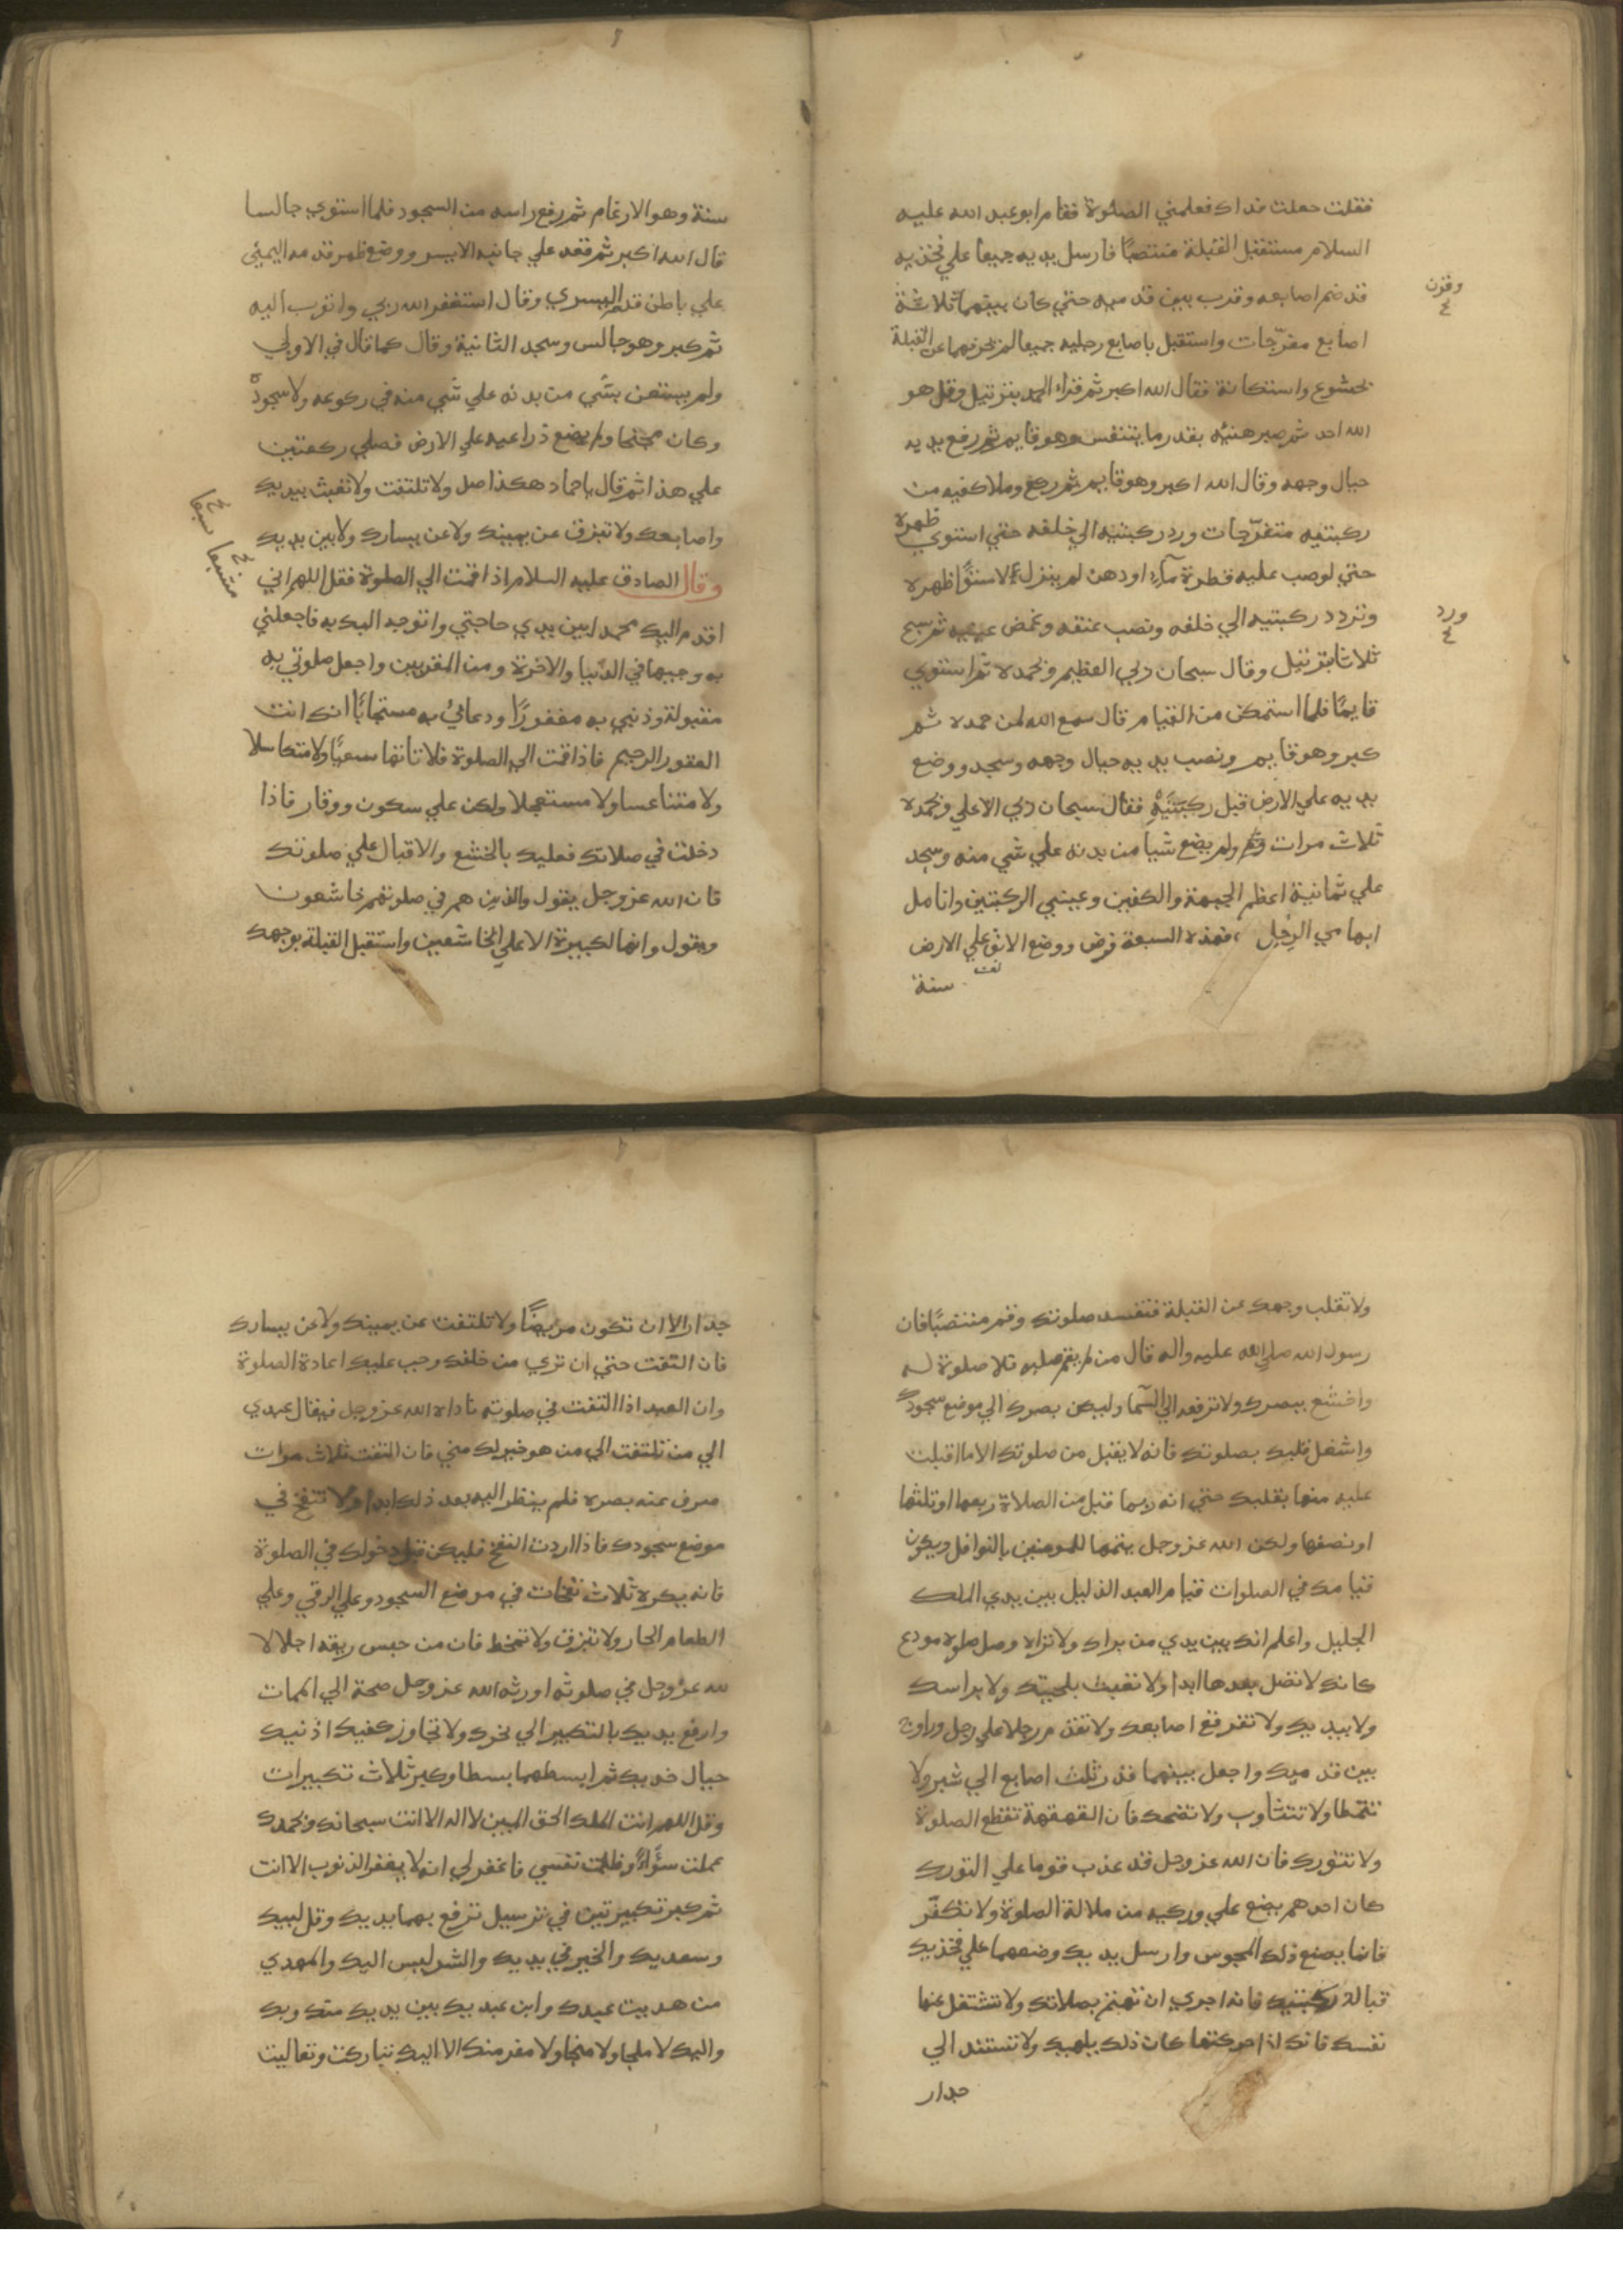 فقلت جعلت فداك فعلمني الصلوة فقام ابو عبد الله عليه
السلام مستقبل القبلة منتصبًا فارسل يديه جميعا علي فخذيه
قد ضم اصابعه وقرب بين قدميه حتي كان بينهما ثلاثة
وقرن
اصابع مفرّجات واستقبل باصابع رجليه جميعا لم يحرفهما عن القبلة
بخشوع واستكانة فقال الله اكبر ثم قراء الحمد بترتيل وقل هو
الله احد ثم صبر هنئيه بقدر ما يتنفس وهو قايم ثم رفع يديه
حيال وجهه وقال الله اكبر وهو قايم ثم ركع وملا كفيه من
ركبتيه متفرّجات ورد ركبتيه الي خلفه حتي استوي ظهره
حتي لوصب عليه قطرة مآء او دهن لم ينزل لاستوًا ظهره
وتردد ركبتيه الي خلفه ونصب عنقه وغمض عينيه ثم سبح
ورد
ثلاثا بترتيل وقال سبحان ربي العظيم وبحمده ثم استوي
قايمًا فلما استمكن من القيام قال سمع الله لمن حمده ثم
كبر وهو قايم ونصب يديه حيال وجهه وسجد ووضع
يديه علي الارض قبل ركبتيه فقال سبحان ربي الاعلي وبحمده
ثلاث مرات ولم يضع شيا من بدنه علي شي منه وسجد
علي ثمانية اعظم الجبهة والكفين وعيني الركبتين وانامل
ابهامي الرجل فهذه السبعة فرض ووضع الانف علي الارض
سنة
سنة وهو الارغام ثم رفع راسه من السجود فلما استوي جالسا
قال الله اكبر ثم قعد علي جانبه الايسر ووضع ظهر قدمه اليمني
علي باطن قدمه اليسري وقال استغفر الله ربي واتوب اليه
ثم كبر وهو جالس وسجد الثانية وقال كما قال في الاولي
ولم يستعن بشي من بدنه علي شي منه في ركوعه ولا سجوده
وكان مجنحا ولم يضع ذراعيه علي الارض فصلي ركعتين
علي هذا ثم قال يا حماد هكذا صل ولا تلتفت ولا تعبث بيديك
واصابعك ولا تبزق عن يمينك ولا عن يسارك ولا بين يديك
وقال الصادق عليه السلام اذا قمت الي الصلوة فقل اللهم اني
اقدم اليك محمدا بين يدي حاجتي واتوجه اليك به فاجعلني
به وجيها في الدّنيا والاخرة ومن المقربين واجعل صلوتي به
مقبولة وذنبي به مغفورًا ودعائي به مستجابًا انك انت
الغفور الرحيم فاذا قمت الي الصلوة فلا تاتها سعيًا ولا متكاسلا
ولا متناعسا ولا مستعجلا ولكن علي سكون ووقار فاذا
دخلت في صلاتك فعليك بالخشع والاقبال علي صلوتك
فان الله عز وجل يقول والذين هم في صلوتهم خاشعون
ويقول وانها لكبيرة الا علي الخاشعين واستقبل القبلة بوجهك
ولا تقلب وجهك عن القبلة فتفسد صلوتك وقم منتصبًا فان
رسول الله صلي الله عليه واله قال من لم يقم صلبه فلا صلوة له
واخشع ببصرك ولا ترفعه الي السّما وليكن بصرك الي موضع سجودك
واشغل قلبك بصلوتك فانه لا يقبل من صلوتك الا ما اقبلت
عليه منها بقلبك حتي انه ربما قبل من الصلاة ربعها او ثلثها
او نصفها ولكن الله عز وجل يتمها للمومنين بالنوافل ويكون
قيامك في الصلوات قيام العبد الذليل بين يدي الملك
الجليل واعلم انك بين يدي من يراك ولا تراه وصل صلوة مودع
كانك لا تصل بعدها ابدا ولا تعبث بلحيتك ولا براسك
ولا بيديك ولا تفرقع اصابعك ولا تقدم رجلا علي رجل وراوح
بين قدميك واجعل بينهما قدر ثلث اصابع الي شبر ولا
تتمطا ولا تتثاوب ولا تضحك فان القهقهة تقطع الصلوة
ولا تتورك فان الله عز وجل قد عذب قوما علي التورك
كان احدهم يضع علي وركيه من ملالة الصلوة ولا تكفّر
فانما يصنع ذلك المجوس وارسل يديك وضعهما علي فخذيك
قبالة ركبتيك فانه احري ان تهتم بصلاتك ولا تشتغل عنها
نفسك فانك اذا حركتها كان ذلك يلهيك ولا تستند الي
جدار
جدار الا ان تكون مريضًا ولا تلتفت عن يمينك ولا عن يسارك
فان التفت حتي ان تري من خلفك وجب عليك اعادة الصلوة
وان العبد اذا التفت في صلوته ناداه الله عز وجل فيقال عبدي
الي من تلتفت الي من هو خير لك مني فان التفت ثلاث مرات
صرف عنه بصره فلم ينظر اليه بعد ذلك ابدا ولا تنفخ في
موضع سجودك فاذا اردت النفخ فليكن قبل دخولك في الصلوة
فانه يكره ثلاث نفخات في موضع السجود وعلي الرقي وعلي
الطعام الحار ولا تبزق ولا تمخط فان من حبس ريقه اجلالا
لله عز وجل في صلوته اورثه الله عز وجل صحة الي الممات
وارفع يديك بالتكبير الي نحرك ولا تجاوز كفيك اذنيك
حيال خديك ثم ابسطهما بسطا وكبر ثلاث تكبيرات
وقل اللهم انت الملك الحق المبين لا اله الا انت سبحانك وبحمدك
عملت سوًاءً وظلمت نفسي فاغفر لي انه لا يغفر الذنوب الا انت
ثم كبر تكبيرتين في ترسيل ترفع بهما يديك وقل لبيك
وسعديك والخير في يديك والشر ليس اليك والمهدي
من هديت عبدك وابن عبديك بين يديك منك وبك
واليك لا ملجا ولا منجا ولا مفر منك الا اليك تباركت وتعاليت